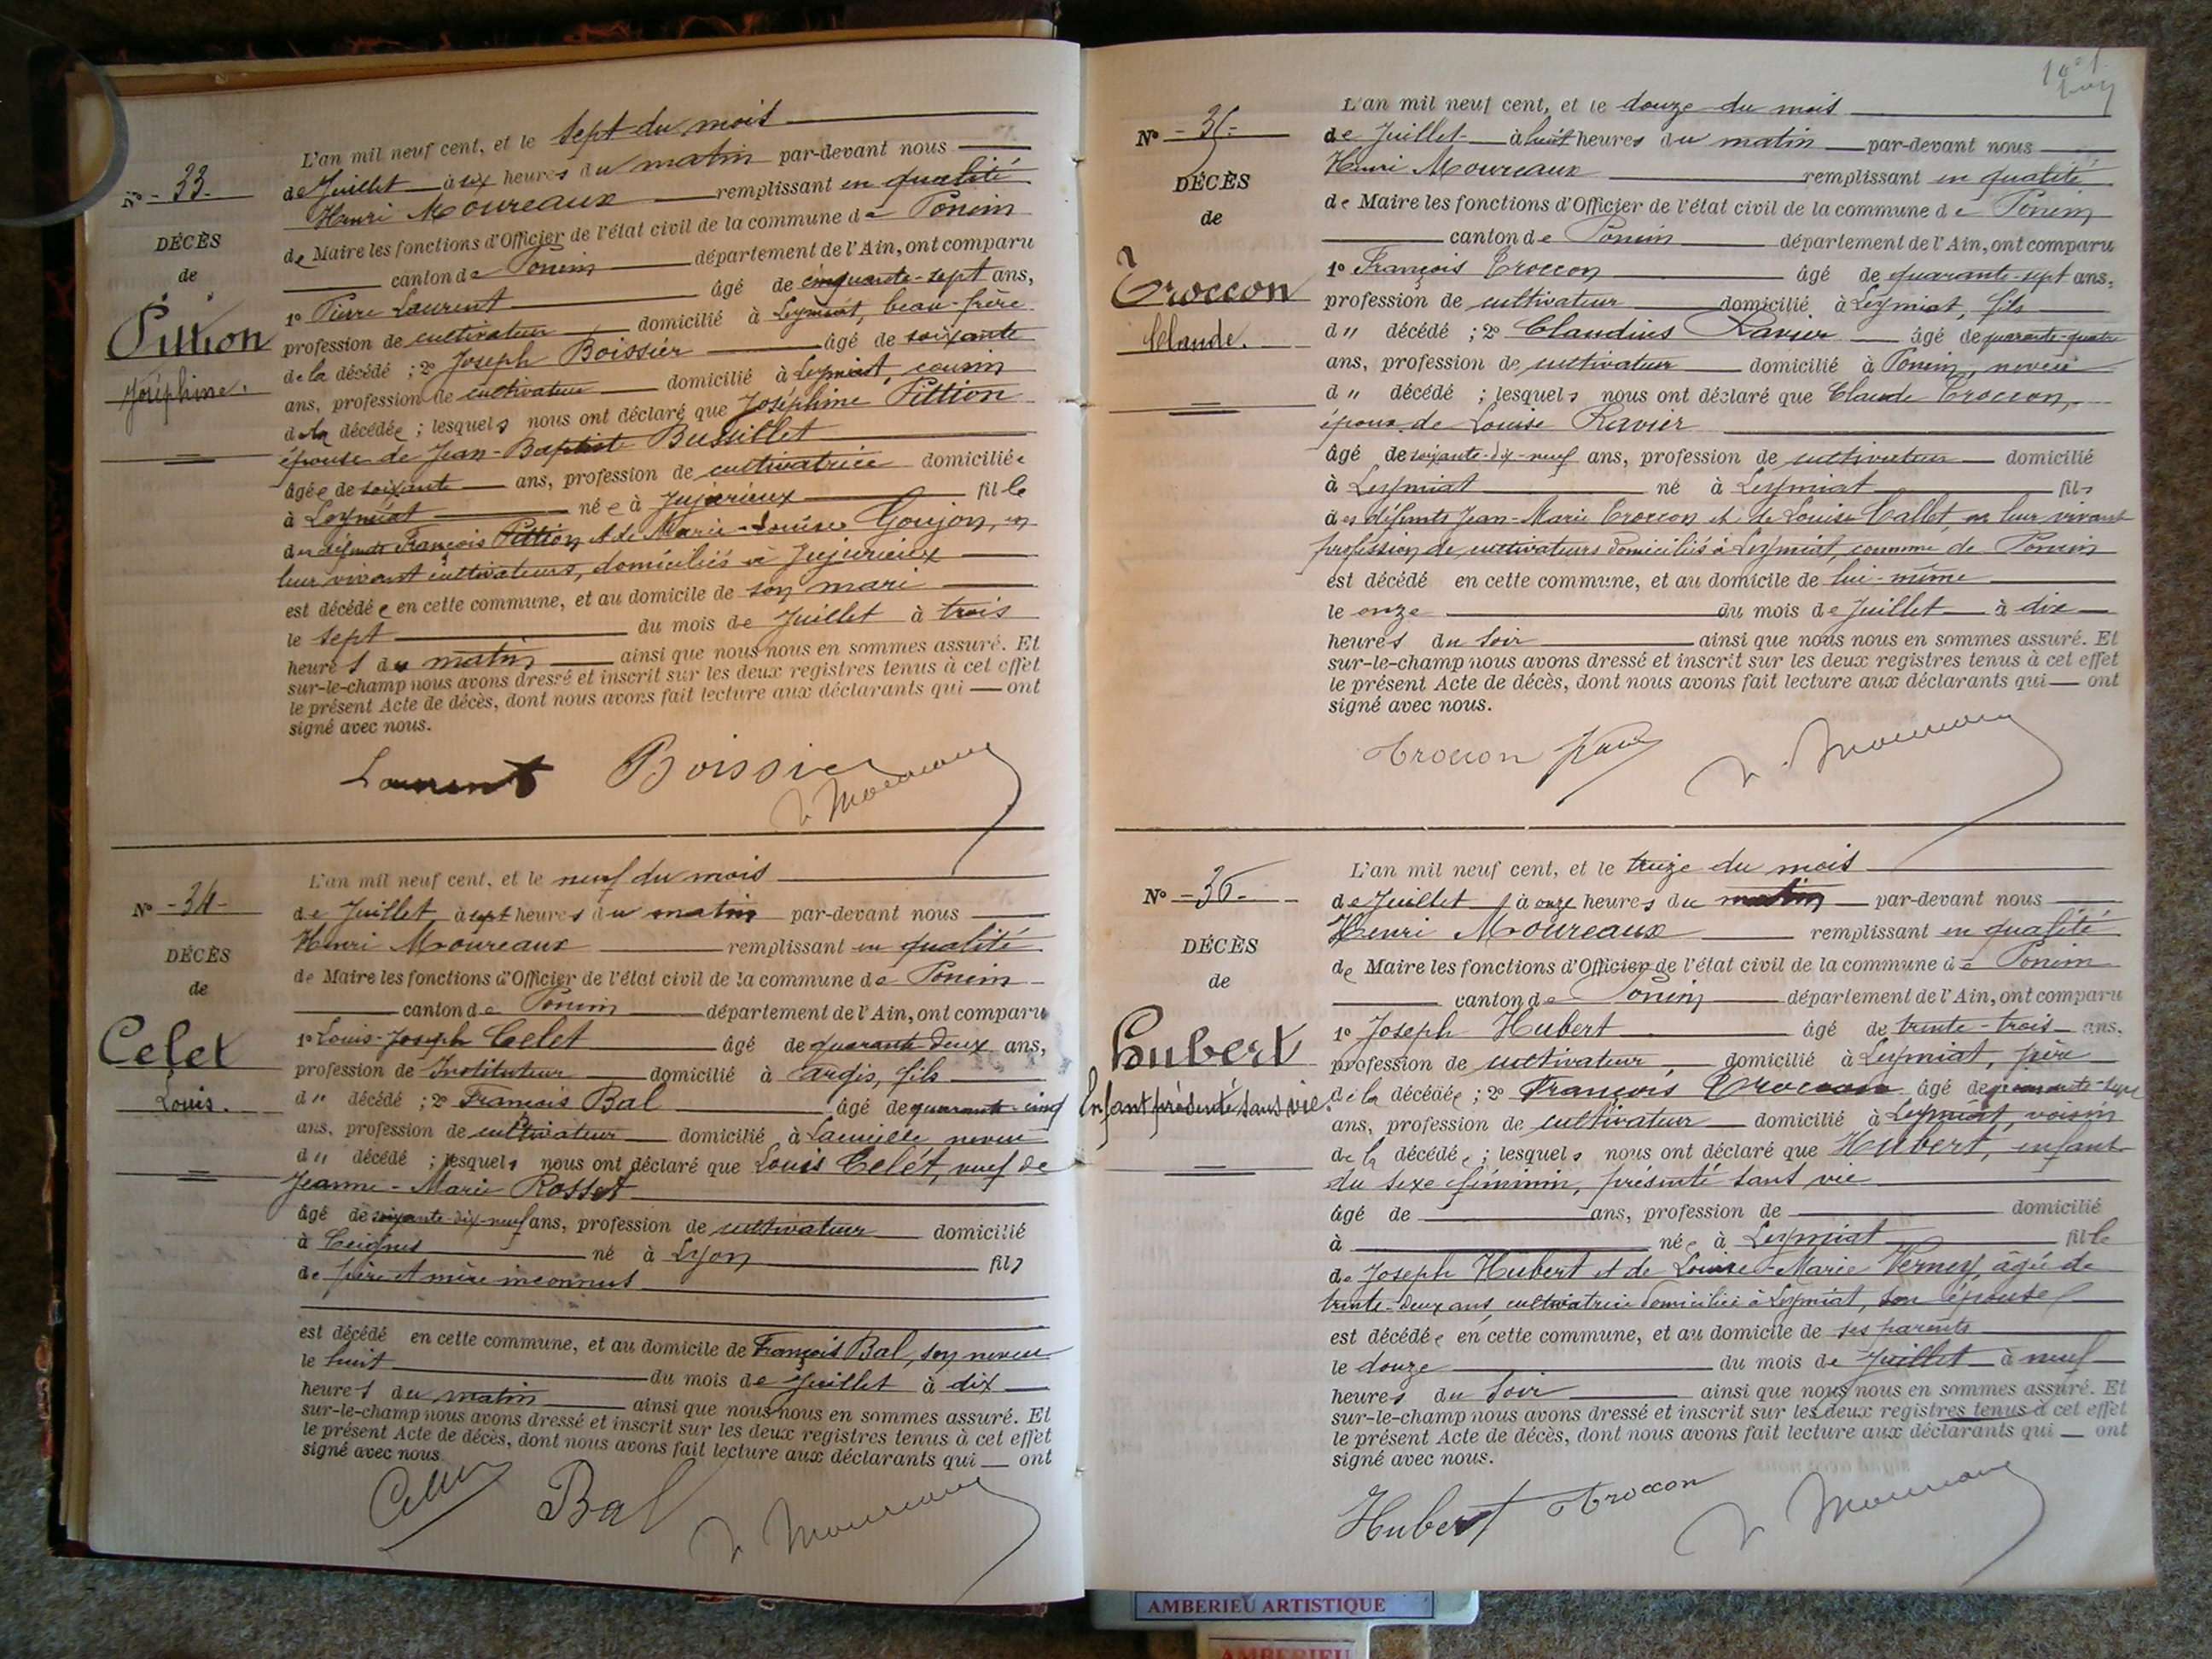 L'an mil neuf cent, et le sept du mois
N° - 33 -
de Juillet à six heures du matin par-devant nous
Henri Moureaux remplissant en qualité
DÉCÈS
de Maire les fonctions d'Officier de l'état civil de la commune de Poncin
de
canton de Poncin département de l'Ain, ont comparu
1° Pierre Laurent âgé de cinquante-sept ans,
Pittion
profession de cultivateur domicilié à Leymiat, beau-frère
Joséphine.
de la décédé ; 2° Joseph Boissier âgé de soixante
ans, profession de cultivateur domicilié à Leymiat, cousin
de la décédée ; lesquels nous ont déclaré que Joséphine Pittion
épouse de Jean-Baptiste Bussillet
âgée de soixante ans, profession de cultivatrice domiciliée
à Leymiat née à Jujurieux fille
des défunts François Pittion et de Marie-Louise Goujon, en
leur vivant cultivateurs, domiciliés à Jujurieux
est décédée en cette commune, et au domicile de son mari
le sept du mois de Juillet à trois
heures du matin ainsi que nous nous en sommes assuré. Et
sur-le-champ nous avons dressé et inscrit sur les deux registres tenus à cet effet
le présent Acte de décès, dont nous avons fait lecture aux déclarants qui ont
signé avec nous.
Laurent Boissier H. Moureaux
L'an mil neuf cent, et le neuf du mois
N° - 34 -
de Juillet à sept heures du matin par-devant nous
Henri Moureaux remplissant en qualité
DÉCÈS
de Maire les fonctions d'Officier de l'état civil de la commune de Poncin
de
canton de Poncin département de l'Ain, ont comparu
Celet
1° Louis-Joseph Celet âgé de quarante deux ans,
profession de Instituteur domicilié à Argis, fils
Louis.
d" décédé ; 2° François Bal âgé de quarante-cinq
ans, profession de cultivateur domicilié à neveu
d" décédé ; lesquels nous ont déclaré que Louis Celet, veuf de
Jeanne-Marie Rosset
âgé de soixante-dix-neuf ans, profession de cultivateur domicilié
à Ceignes né à Lyon fils
de père et mère inconnus
est décédé en cette commune, et au domicile de François Bal, son neveu
le huit du mois de Juillet à dix
heures du matin ainsi que nous nous en sommes assuré. Et
sur-le-champ nous avons dressé et inscrit sur les deux registres tenus à cet effet
le présent Acte de décès, dont nous avons fait lecture aux déclarants qui ont
signé avec nous.
Celet Bal H. Moureaux
L'an mil neuf cent, et le douze du mois
N° - 35 -
de Juillet à huit heures du matin par-devant nous
Henri Moureaux remplissant en qualité
DÉCÈS
de Maire les fonctions d'Officier de l'état civil de la commune de Poncin
de
canton de Poncin département de l'Ain, ont comparu
1° François Troccon âgé de quarante-sept ans,
Troccon
profession de cultivateur domicilié à Leymiat, fils
Claude.
d" décédé ; 2° Claudius Ravier âgé de quarante-quatre
ans, profession de cultivateur domicilié à Poncin, neveu
d" décédé ; lesquels nous ont déclaré que Claude Troccon,
époux de Louise Ravier
âgé de soixante-dix-neuf ans, profession de cultivateur domicilié
à Leymiat né à Leymiat fils
des défunts Jean-Marie Troccon et de Louise Callet, en leur vivant
profession de cultivateurs domiciliés à Leymiat, commune de Poncin
est décédé en cette commune, et au domicile de lui-même
le onze du mois de Juillet à dix
heures du soir ainsi que nous nous en sommes assuré. Et
sur-le-champ nous avons dressé et inscrit sur les deux registres tenus à cet effet
le présent Acte de décès, dont nous avons fait lecture aux déclarants qui ont
signé avec nous.
Troccon H. Moureaux
L'an mil neuf cent, et le treize du mois
N° - 36 -
de Juillet à onze heures du matin par-devant nous
Henri Moureaux remplissant en qualité
DÉCÈS
de Maire les fonctions d'Officier de l'état civil de la commune de Poncin
de
canton de Poncin département de l'Ain, ont comparu
Hubert
1° Joseph Hubert âgé de trente-trois ans,
profession de cultivateur domicilié à Leymiat, père
Enfant présenté sans vie.
de la décédée ; 2° François Troccon âgé de quarante-sept
ans, profession de cultivateur domicilié à Leymiat, voisin
de la décédée ; lesquels nous ont déclaré que Hubert, enfant
du sexe féminin, présenté sans vie
âgé de ans, profession de domicilié
à née à Leymiat fille
de Joseph Hubert et de Louise-Marie Verney, âgée de
trente-deux ans, cultivatrice domiciliée à Leymiat, son épouse
est décédée en cette commune, et au domicile de ses parents
le douze du mois de Juillet à neuf
heures du soir ainsi que nous nous en sommes assuré. Et
sur-le-champ nous avons dressé et inscrit sur les deux registres tenus à cet effet
le présent Acte de décès, dont nous avons fait lecture aux déclarants qui ont
signé avec nous.
Hubert Troccon H. Moureaux
AMBERIEU ARTISTIQUE
AMBERIEU